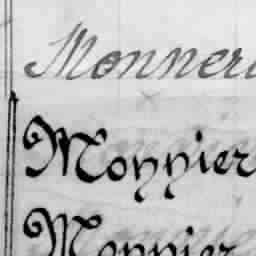 Monner
Monnier
Monnier